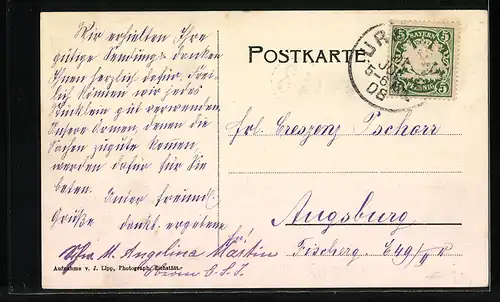 Wir erhielten Ihre
gütige Sendung u. danken
Ihnen herzlich dafür. Frei-
lich können wir jedes
Stücklein gut verwenden.
Unsere Armen, denen die
Sachen zugute kommen,
werden dafür für Sie
beten.
Unter freundl.
Grüße dankb. ergebene
Schw. M. Angelina Martin
Oberin O.S.F.
Aufnahme v. J. Lipp, Photograph, Eichstätt.
POSTKARTE
5 BAYERN 5
5 PFENNIG 5
5-6
08
Frl. Creszenz Pschorr
Augsburg
Fischerg. E49/II